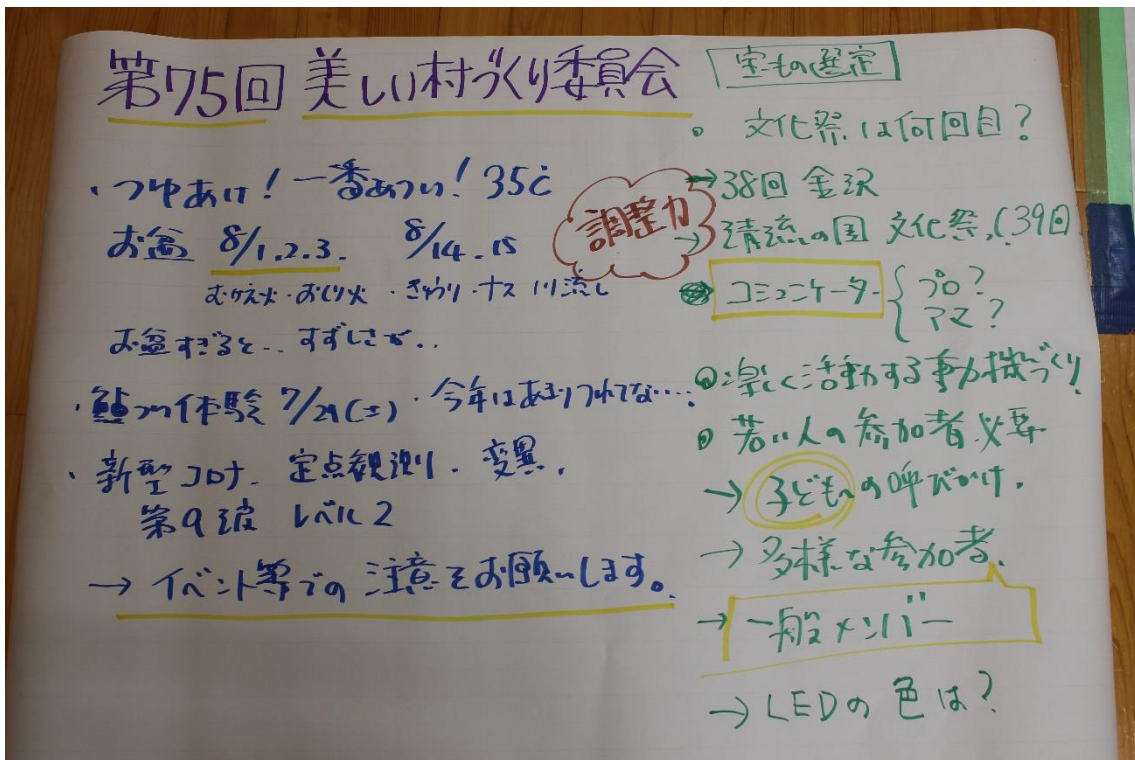 第75回 美しい村づくり委員会
・つゆあけ！一番あつい！35℃
お盆 8/1.2.3. 8/14.15
むかえ火・おくり火・きゅうり・ナス 川流し
お盆すぎると..すずしさが..
・鮎つり体験 7/29(土)・今年はあまりつれてな…。
・新型コロナ. 定点観測. 変異.
第9波 レベル2
→イベント等での注意をお願いします。
調整力
宝もの選定
・文化祭は何回目？
→38回 金沢
→清流の国 文化祭.(39回)
コミュニケーター { プロ？
アマ？
楽しく活動する動機づくり
若い人の参加者必要
→子どもへの呼びかけ.
→多様な参加者.
→一般メンバー
→LEDの色は？